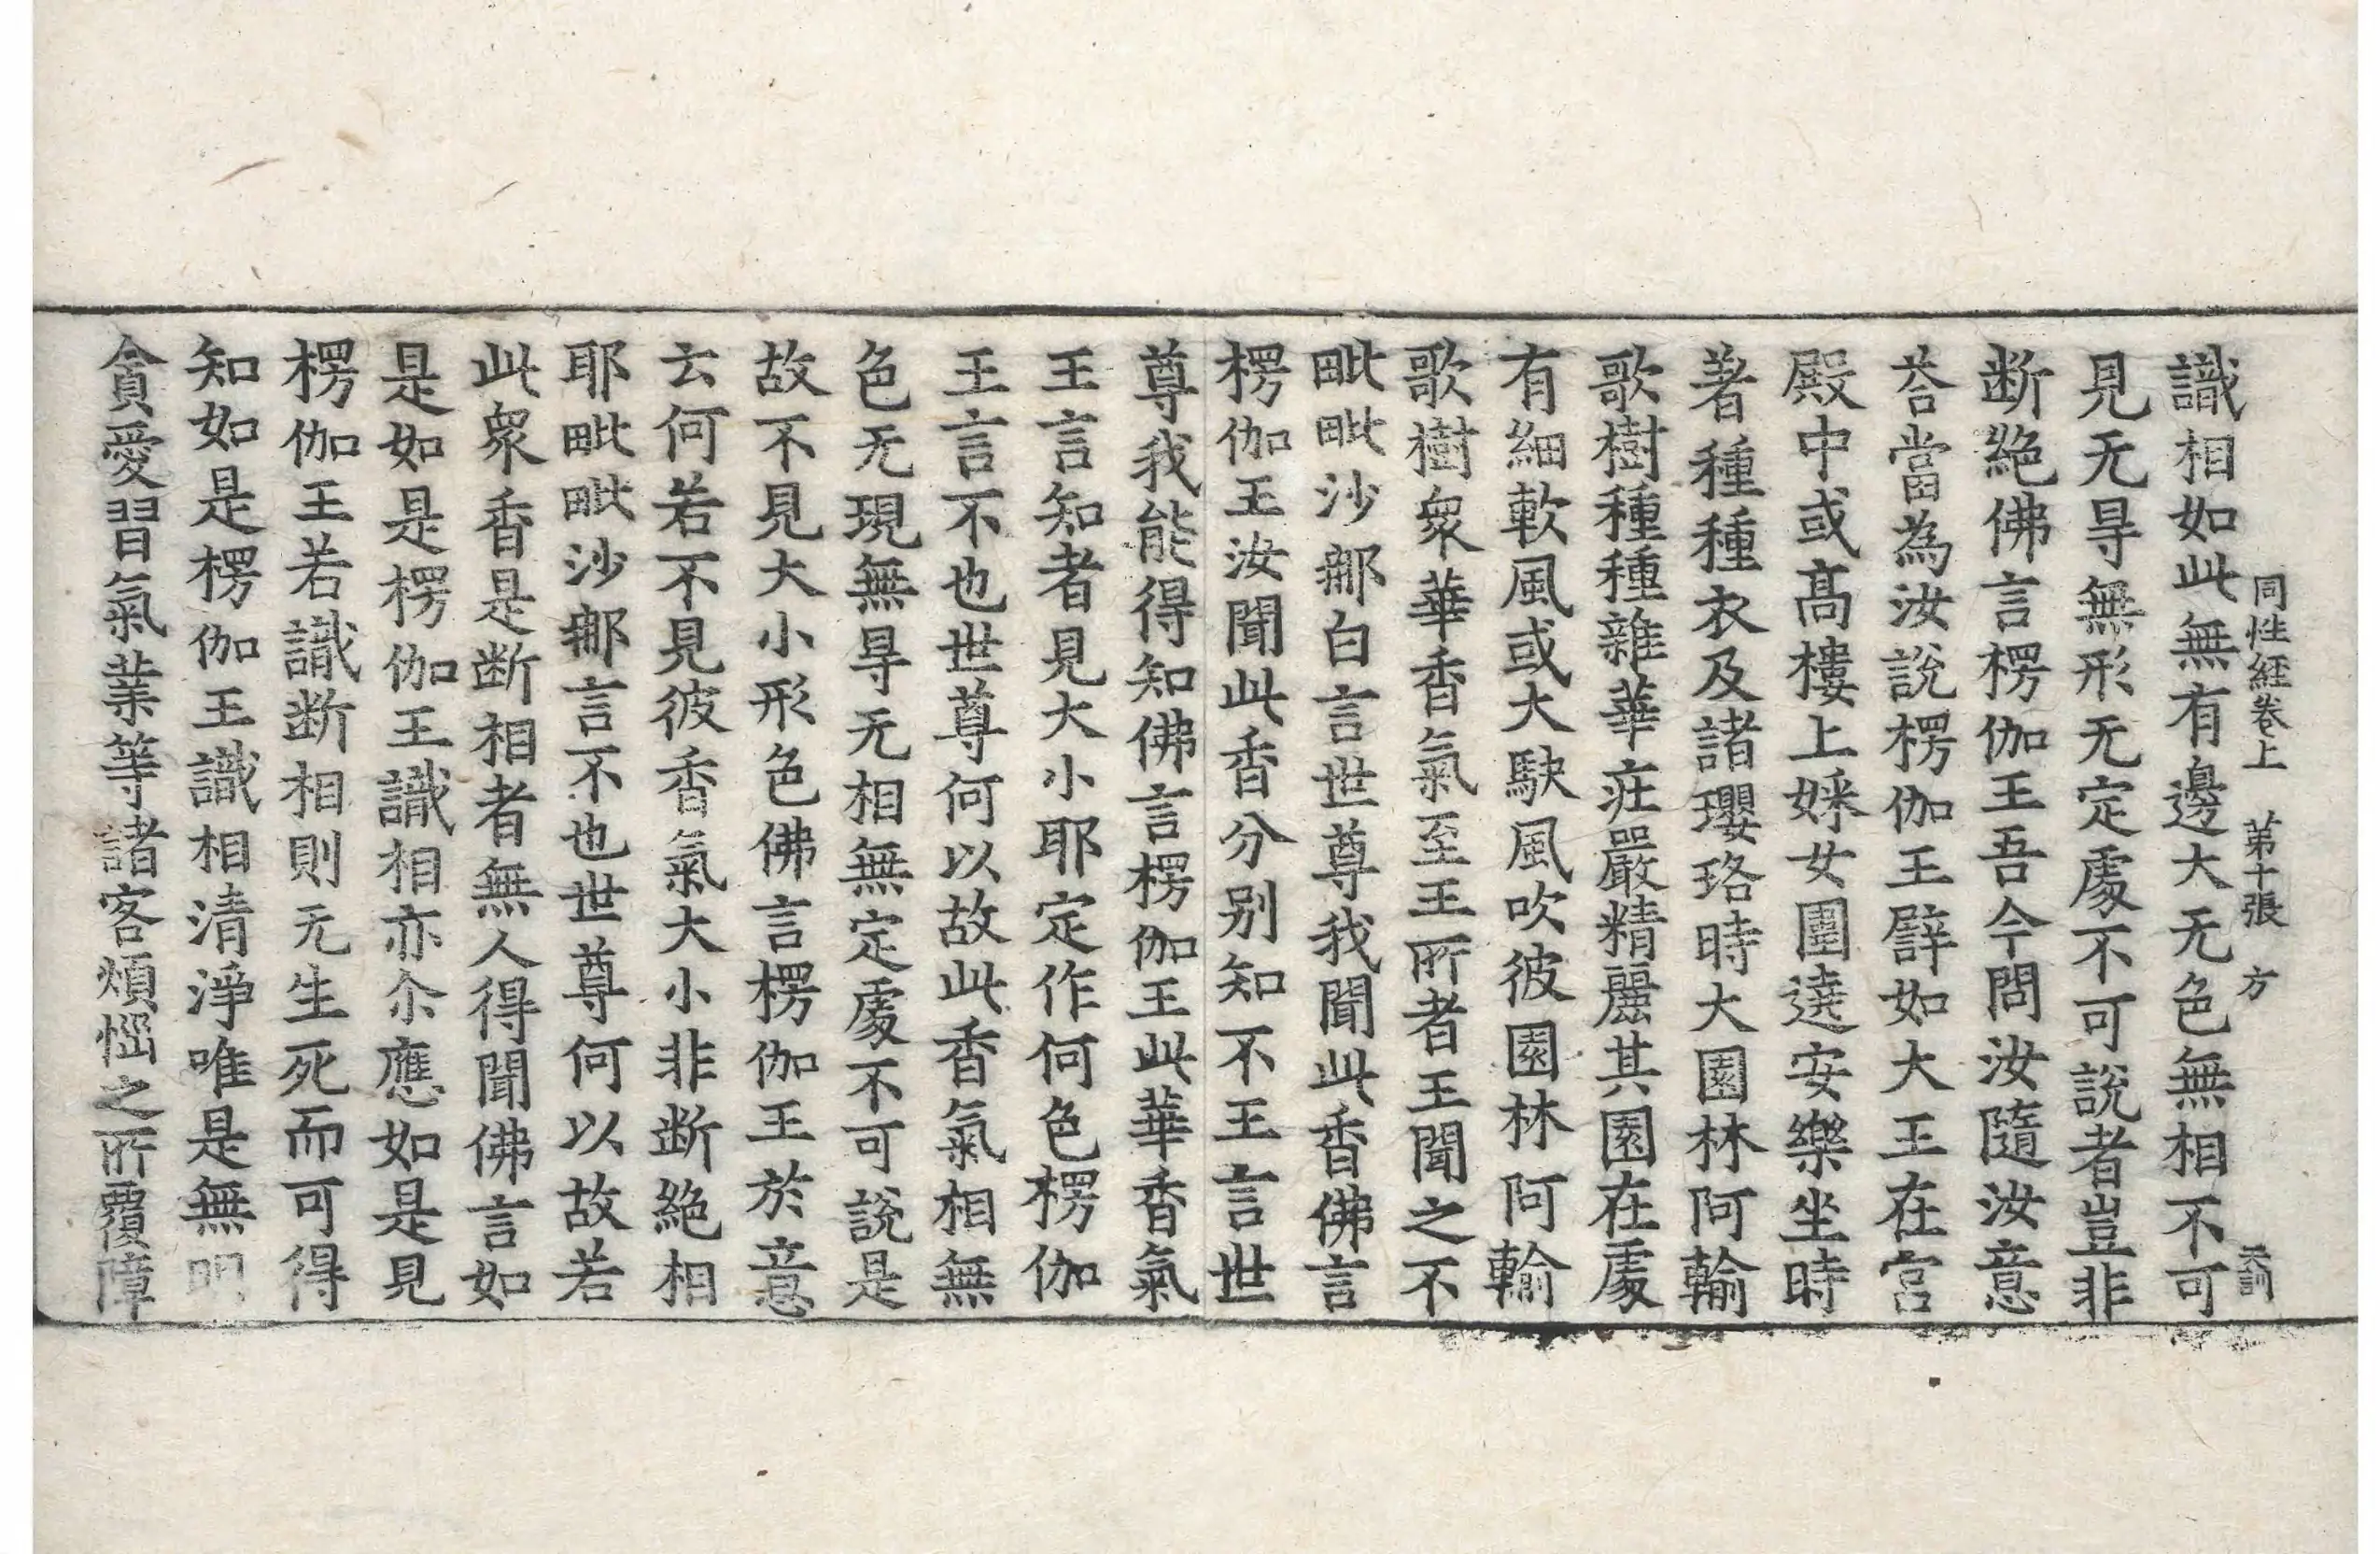 同性経卷上 第十張 方
識相如此無有邊大无色無相不可
見无㝵無形无定處不可說者豈非
断絶佛言楞伽王吾今問汝隨汝意
荅當為汝說楞伽王譬如大王在宮
殿中或髙樓上婇女圍遶安樂坐時
著種種衣及諸瓔珞時大園林阿輸
歌樹種種雜華莊嚴精麗其園在處
有細軟風或大駃風吹彼園林阿輸
歌樹衆華香氣至王所者王聞之不
毗毗沙𨚗白言世尊我聞此香佛言
楞伽王汝聞此香分别知不王言世
尊我能得知佛言楞伽王此華香氣
王言知者見大小耶定作何色楞伽
王言不也世尊何以故此香氣相無
色无現無㝵无相無定處不可說是
故不見大小形色佛言楞伽王於意
云何若不見彼香氣大小非断絶相
耶毗毗沙𨚗言不也世尊何以故若
此衆香是断相者無人得聞佛言如
是如是楞伽王識相亦尒應如是見
楞伽王若識断相則无生死而可得
知如是楞伽王識相清淨唯是無明
貪愛習氣業等諸客煩惱之所覆障